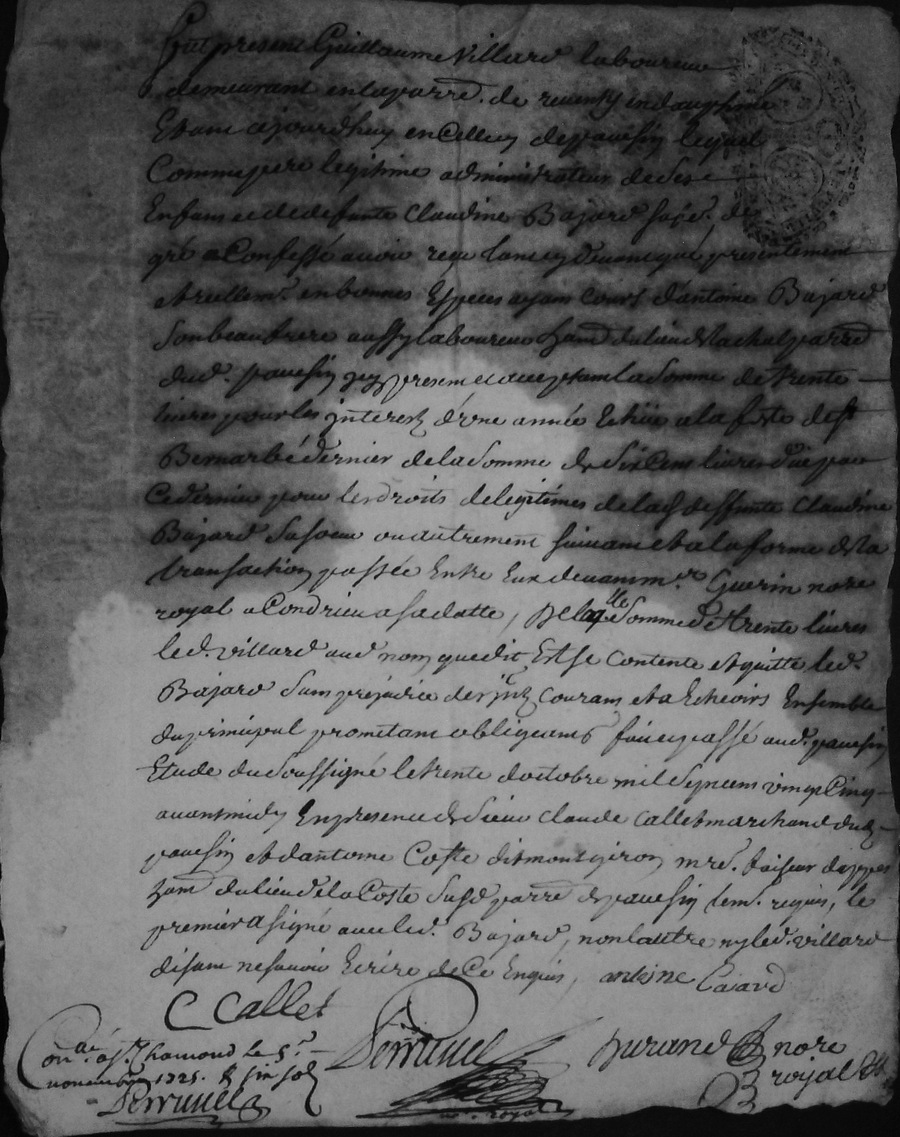 Fut present Guillaume Villard laboureur
demeurant en la parre. de reventy en dauphiné
Estant ajourd'huy en celluy de pavesin lequel
Comme pere legitime administrateur de ses
Enfans et de defunte Claudine Bajard sa fe. de
gré a Confessé avoir reçu tant cy devant que presentement
et reellemt. en bonnes Especes ayant cours d'antoine Bajard
son beaufrere aussy laboureur du lieu de la parre
dud. pavesin icy present et acceptant la somme de trente
livres pour les interetz d'une année Echüe a la feste de st
Bernarbé dernier de la somme de six Cens livres düe par
Ce dernier pour les droits de legitimes de lad deffunte Claudine
Bajard sa soeur ou autrement suivant et a la forme de la
transaction passée Entre Eux devant mre Guerin nore
royal a Condrieu a sa datte, De laqlle somme de trente livres
led. villard aud nom que dit Est se contente et quitte led.
Bajard sans prejudice des intz courant et a Echeoirs Ensemble
du principal promettant obligeant fait et passé aud. pavesin
Etude du soussigné le trente d'octobre mil sept cens vingt Cinq
avant midy En presence de sieur Claude Callet marchand dud
pavesin et d'antoine Coste dit montgiron mre. faiseur
du lieu de la Coste susd parre de pavesin tem. requis, le
premier a signé avec led. Bajard, non l'autre ny led. villard
disant ne savoir Ecrire de Ce Enquis, antoine Baiard
C Callet
Perrunel
Durand nore
royal
Con.lé a st. Chamond le 5.e
novembre 1725. R six sols
Perrunel
no. royal